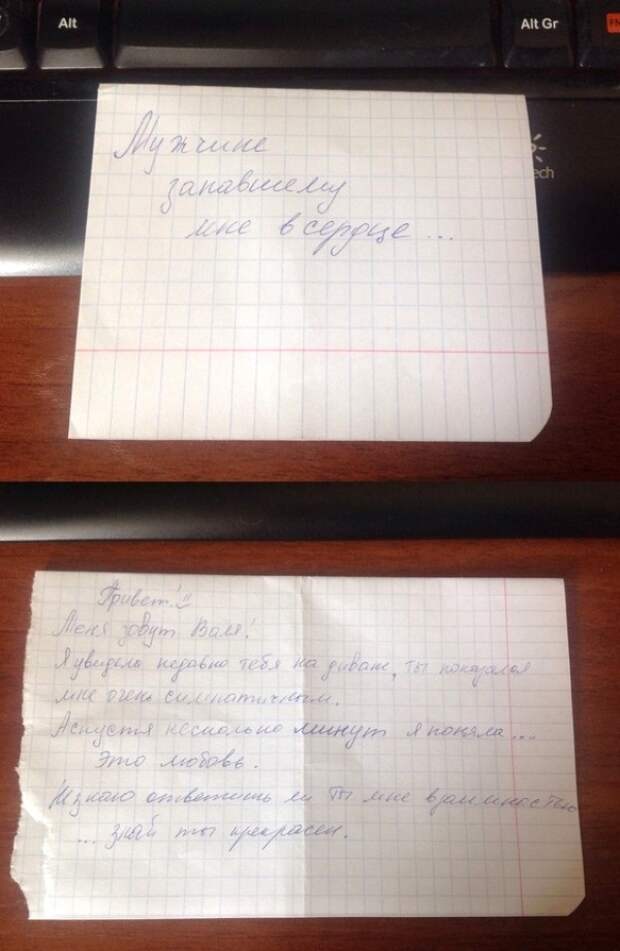 Alt
Alt Gr
FN
ech
Мужчине
запавшему
мне в сердце...
Привет!
Меня зовут Валя!
Я увидела недавно тебя на диване, ты показался
мне очень симпатичным.
А спустя несколько минут я поняла...
Это любовь.
Не знаю ответишь ли ты мне взаимностью
... знай ты прекрасен.